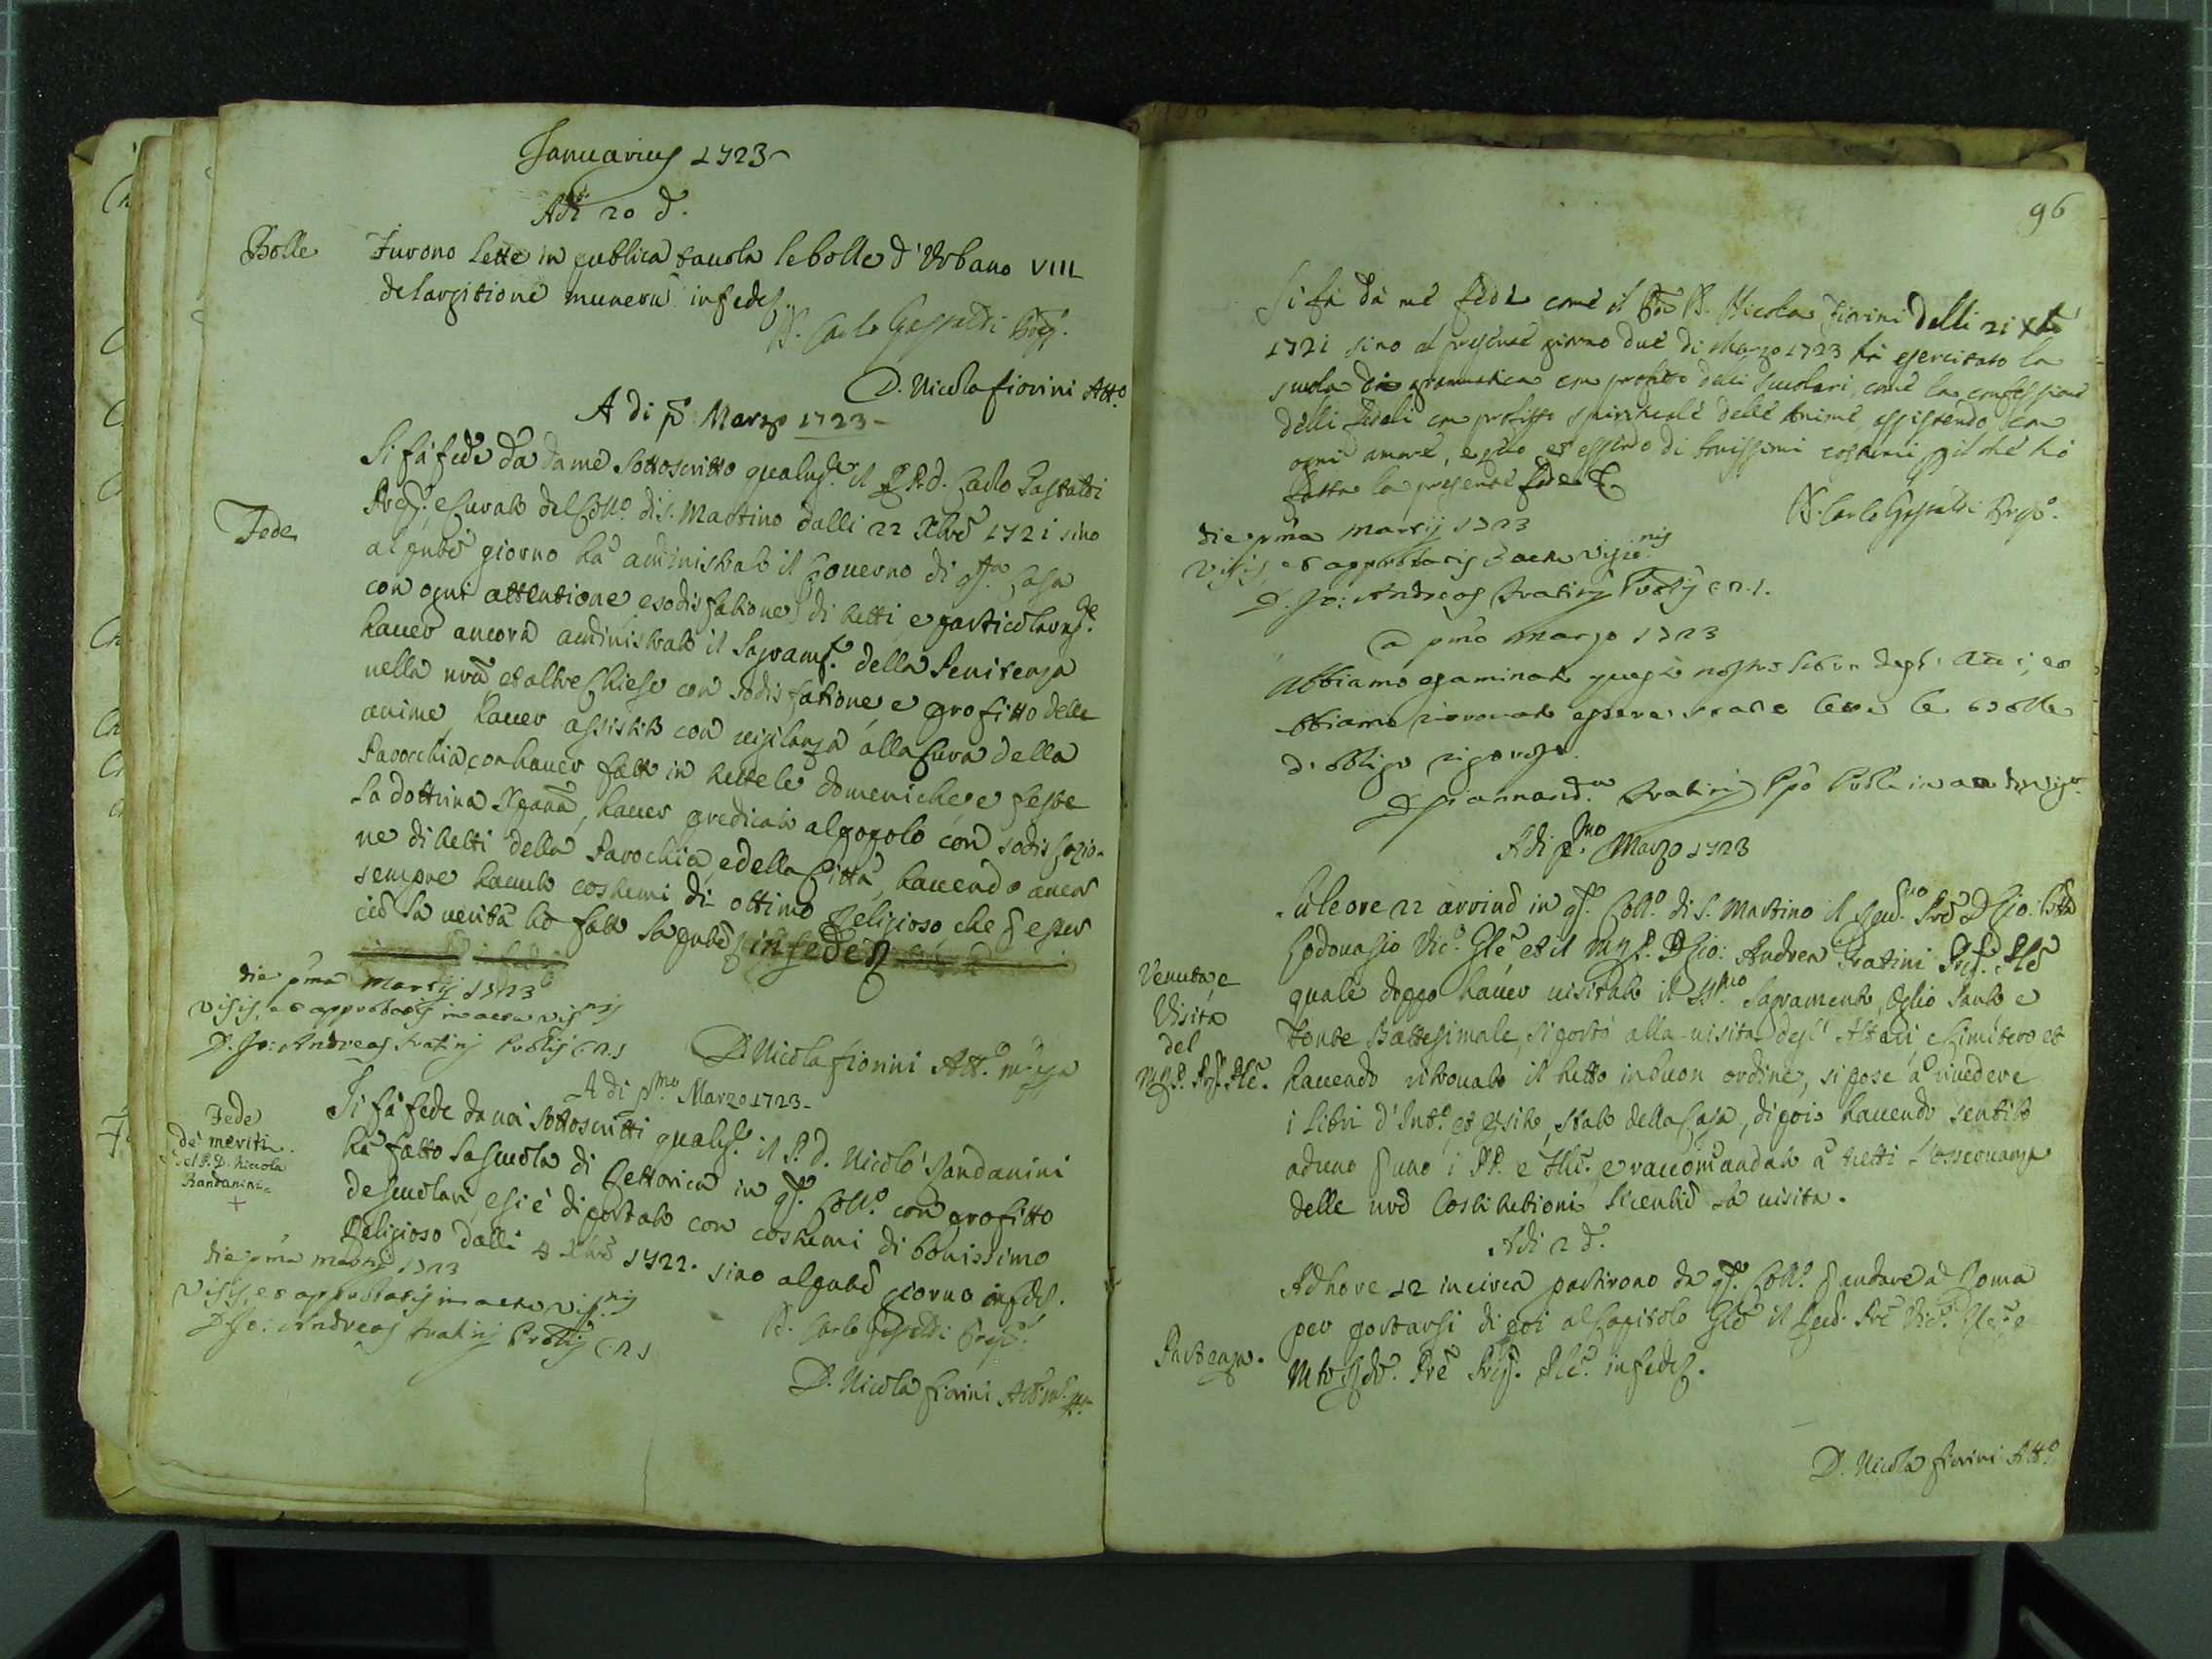 Januarius 1723
Adi 20 d.
Bolle
Furono lette in publica tauola le bolle d'Urbano VIII
de largitione munerũ in fede
D. Carlo Gastaldi Prep.
D. Nicola Fiorini Att.º
A di p.º Marzo 1723
Fede
Si fà fede da da me sottoscritto qualm.te il P. D. Carlo Gastaldi
Prep. e Curato del Coll.º di S. Martino dalli 22 Xbre 1721 sino
al pnte giorno hà amministrato il Gouerno di qsta Casa
con ogni attentione, e sodisfatione di tutti, e particolarm.te
hauer ancora amministrato il Sagram.to della Penitenza
nella nrã, et altre Chiese con sodisfatione e profitto delle
anime, hauer assistito con vigilanza alla Cura della
Parocchia, con hauer fatto in tutte le domeniche, e feste
la dottrina Xpana, hauer predicato al popolo con sodisfazio-
ne di tutti della Parochia, e della Città, hauendo ancor
sempre hauuto costumi di ottimo Religioso, che p esser
ciò la verità hò fatto la pnte in fede
die pma Martij 1723
Visis, et approbatis in actu Vis.nis
D. Jo: Andreas Fratini Prolis C.R.S
D. Nicola Fiorini Att.º
A di p.mo Marzo 1723
Fede
de meriti
del P. D. Niccola
Sandanini
+
Si fà fede da noi sottoscritti qualm.te il P. D. Nicolò Sandanini
hà fatto la scuola di Rettorica in qsto Coll.º con profitto
de scuolari, e si è diportato con costumi di bonissimo
Religioso dalli 4 Xbre 1722. sino al pnte giorno in fede.
die pma Martij 1723
Visis, et approbatis in actu Vis.nis
D. Jo: Andreas Fratinj C.R.S
D. Carlo Gastaldi Prep.to
D. Nicola Fiorini Att.º
96
Si fà da me fede come il D. Nicola Fiorini delli 21 Xbre
1721 sino al presente giorno due di Marzo 1723 hà esercitato la
scuola di gramatica con profitto delli Scuolari, come la confessione
delli fedeli con profitto spirituale delle Anime, assistendo con
ogni amore, e zelo, et essendo di bonissimi costumi p il che hò
fatta la presente fede
D. Carlo Gastaldi Prep.to
die pma Martij 1723
Visis, et approbatis in actu Visit.nis
D. Jo: Andreas Fratinj C.R.S.
A pmo Marzo 1723
Abbiamo esaminato questo nostro libro degli Atti, et
abbiamo ritrouato essere state lette le bolle
d'obbligo
D. Giannand.a Fratinj
Adi p.mo Marzo 1723
Venuta, e
Visita
del
M.R.P. Prep. Ple.
Su le ore 22 arriuò in qsto Coll.º di S. Martino il Rev.mo Pre D. Gio: Btta
Vic.º Gle et il M.R.P. D. Gio: Andrea Fratini Prep. Ple
quale doppo hauer uisitato il SS.mo Sagramento, Oglio Santo e
Fonte Battesimale, si portò alla uisita degl'Altari, e Cimitero et
hauendo ritrouato il tutto in buon ordine, si pose à riuedere
i Libri d'Int.º et Esito, Stato della Casa, di poi hauendo sentito
ad uno p uno i PP. e FLLi. e raccomandato à tutti l'osseruanza
delle nre Costitutioni, licentiò la uisita.
Adi 2 d.
Partenza.
Ad hore 12 incirca partirono da qsto Coll.º p andare à Roma
per portarsi di poi al Capitolo Gle il Reud. Pre Vic.º Gle, e
M.to Rdo. Pre Prep. Ple. in fede.
D. Nicola Fiorini Att.º